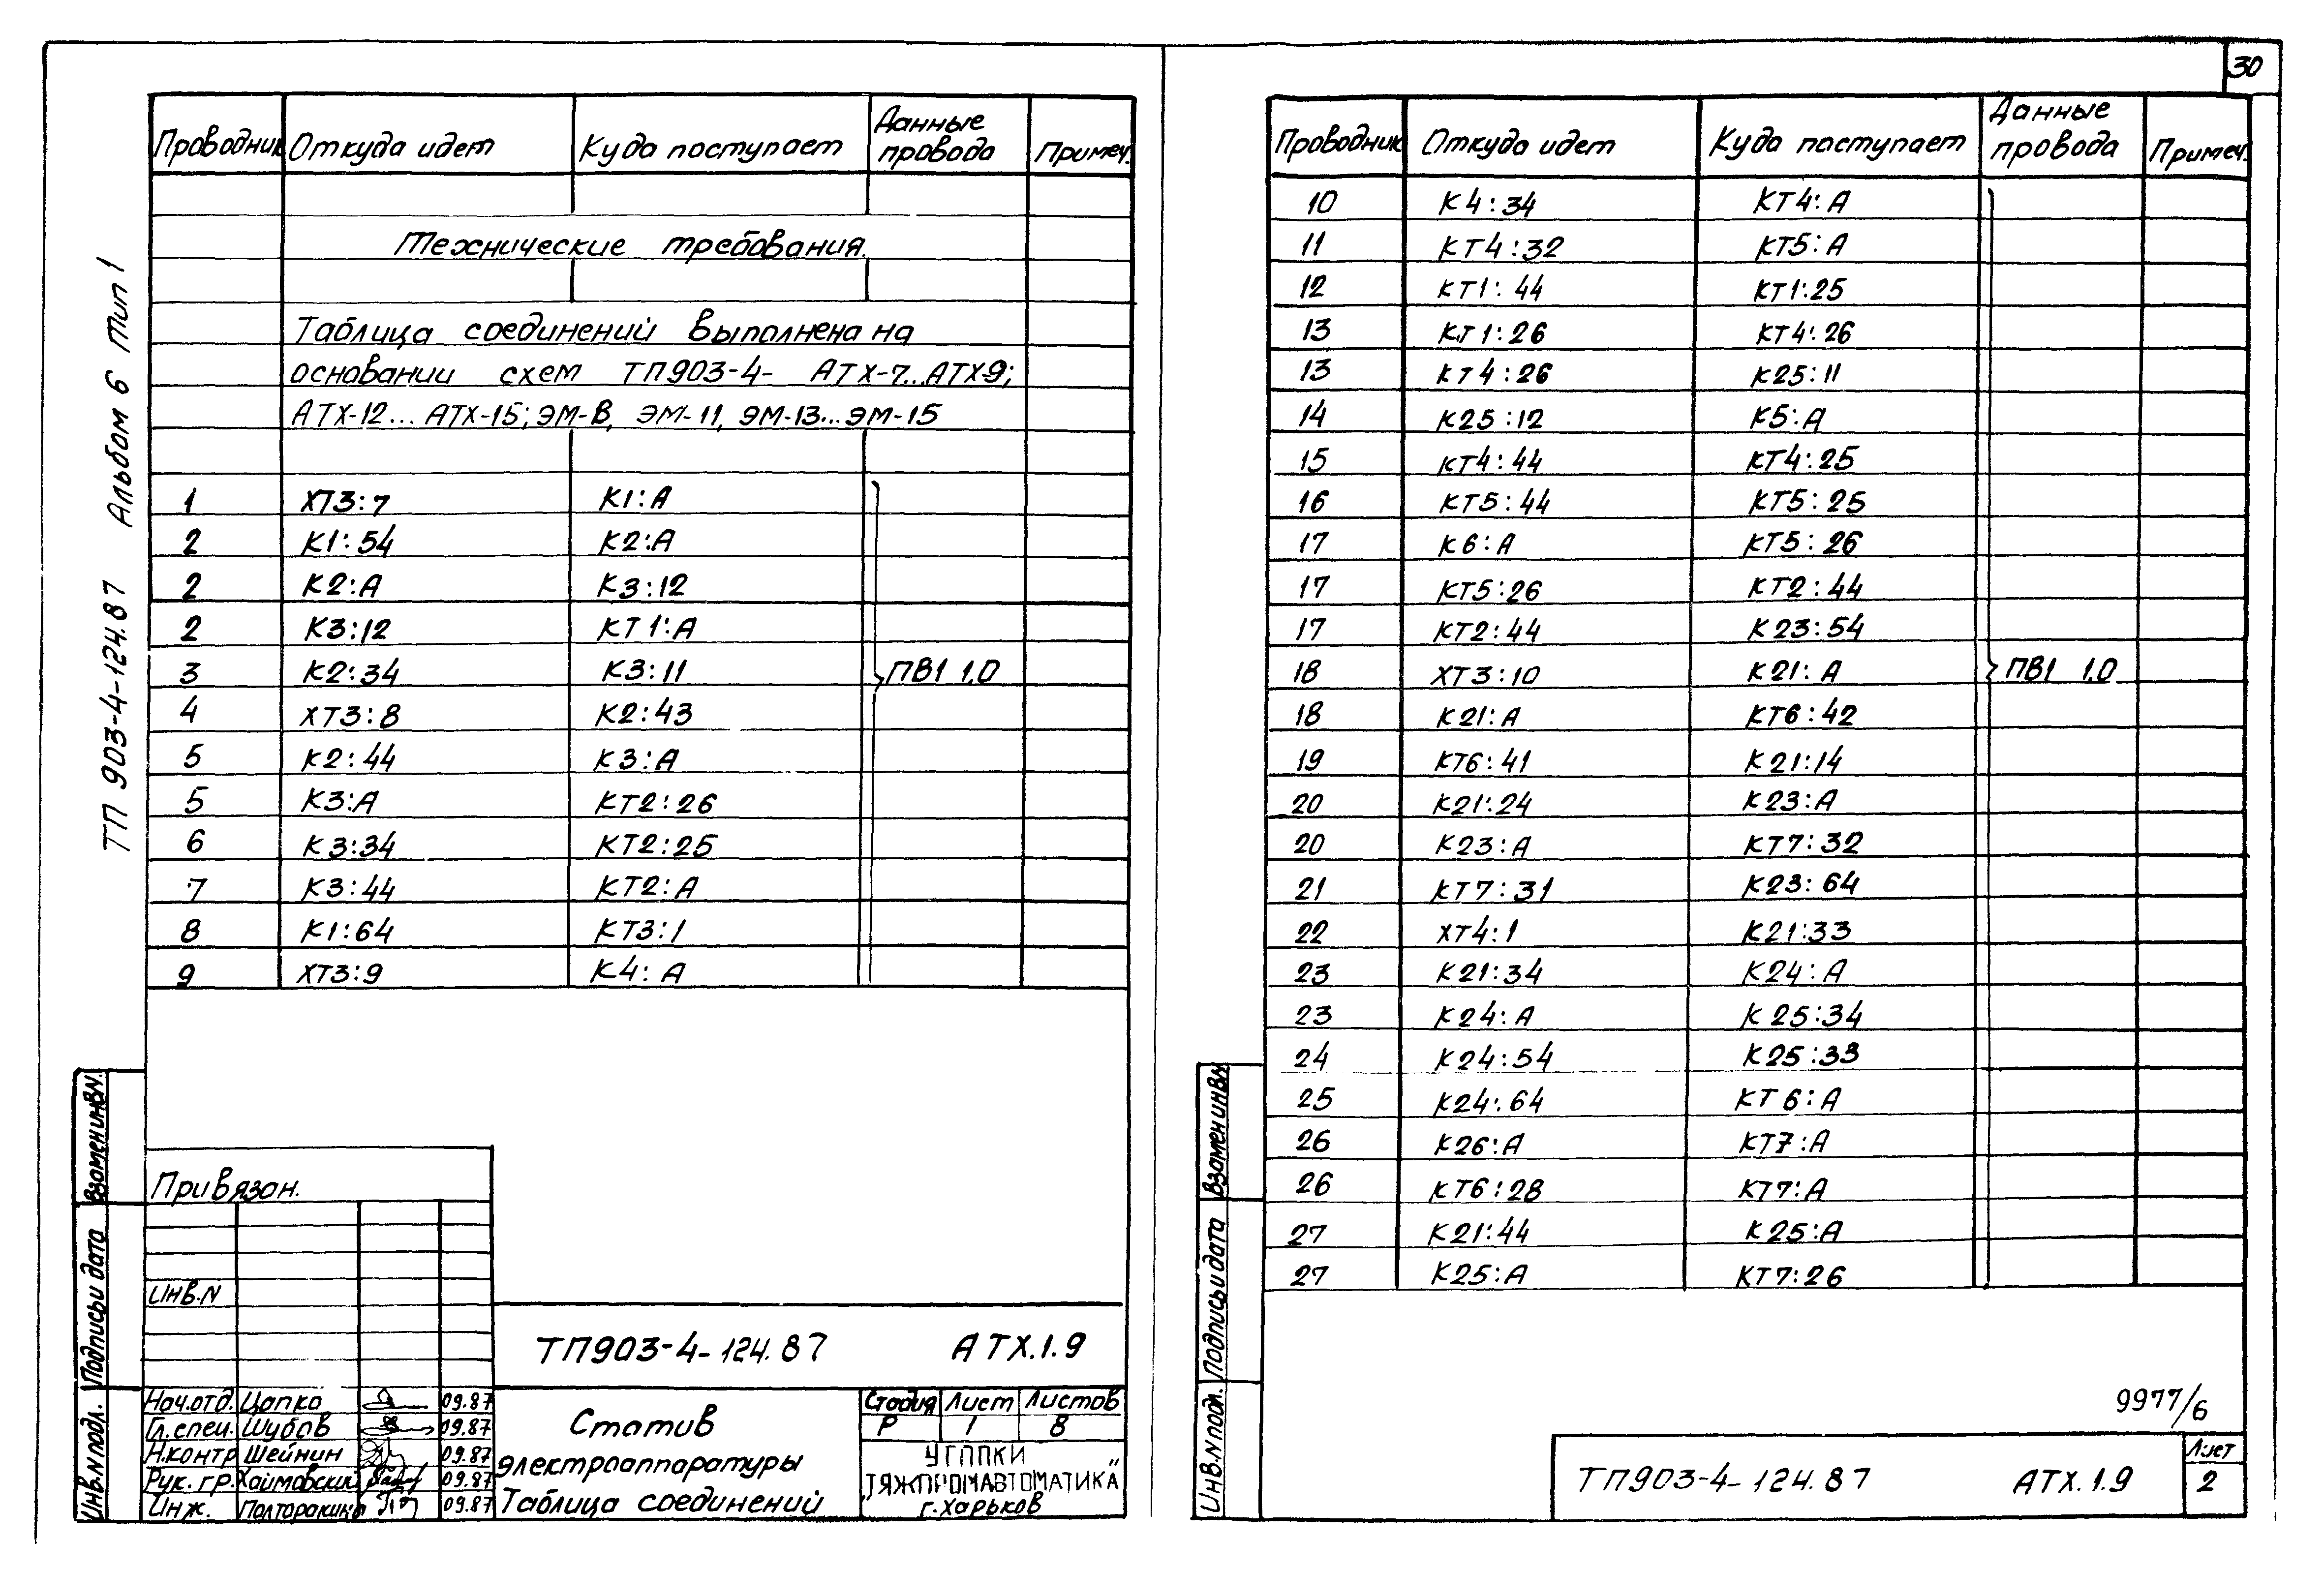 30
ТП 903-4-124.87 Альбом 6 Тип 1
Проводник Откуда идет Куда поступает Данные провода Примеч.
Технические требования.
Таблица соединений выполнена на
основании схем ТП903-4- АТХ-7...АТХ-9;
АТХ-12... АТХ-15; ЭМ-8, ЭМ-11, ЭМ-13...ЭМ-15
1 ХТ3:7 К1:А
2 К1:54 К2:А
2 К2:А К3:12
2 К3:12 КТ1:А
3 К2:34 К3:11 ПВ1 1,0
4 ХТ3:8 К2:43
5 К2:44 К3:А
5 К3:А КТ2:26
6 К3:34 КТ2:25
7 К3:44 КТ2:А
8 К1:64 КТ3:1
9 ХТ3:9 К4:А
Привязан.
Инв.N
ТП903-4-124.87 АТХ.1.9
Нач.отд. Цапко 09.87
Гл.спец. Шубов 09.87
Н.контр Шейнин 09.87
Рук. гр. Хаимовский 09.87
Инж. 09.87
Статив
электроаппаратуры
Таблица соединений
Стадия Лист Листов
Р 1 8
УГППКИ
"ТЯЖПРОМАВТОМАТИКА"
г.Харьков
Взамен инв.N
Подпись и дата
Инв.N подл.
Проводник Откуда идет Куда поступает Данные провода Примеч.
10 К4:34 КТ4:А
11 КТ4:32 КТ5:А
12 КТ1:44 КТ1:25
13 КТ1:26 КТ4:26
13 КТ4:26 К25:11
14 К25:12 К5:А
15 КТ4:44 КТ4:25
16 КТ5:44 КТ5:25
17 К6:А КТ5:26
17 КТ5:26 КТ2:44
17 КТ2:44 К23:54
18 ХТ3:10 К21:А ПВ1 1,0
18 К21:А КТ6:42
19 КТ6:41 К21:14
20 К21:24 К23:А
20 К23:А КТ7:32
21 КТ7:31 К23:64
22 ХТ4:1 К21:33
23 К21:34 К24:А
23 К24:А К25:34
24 К24:54 К25:33
25 К24:64 КТ6:А
26 К26:А КТ7:А
26 КТ6:28 КТ7:А
27 К21:44 К25:А
27 К25:А КТ7:26
9977/6
ТП903-4-124.87 АТХ.1.9
Лист
2
Взамен инв.N
Подпись и дата
Инв.N подл.